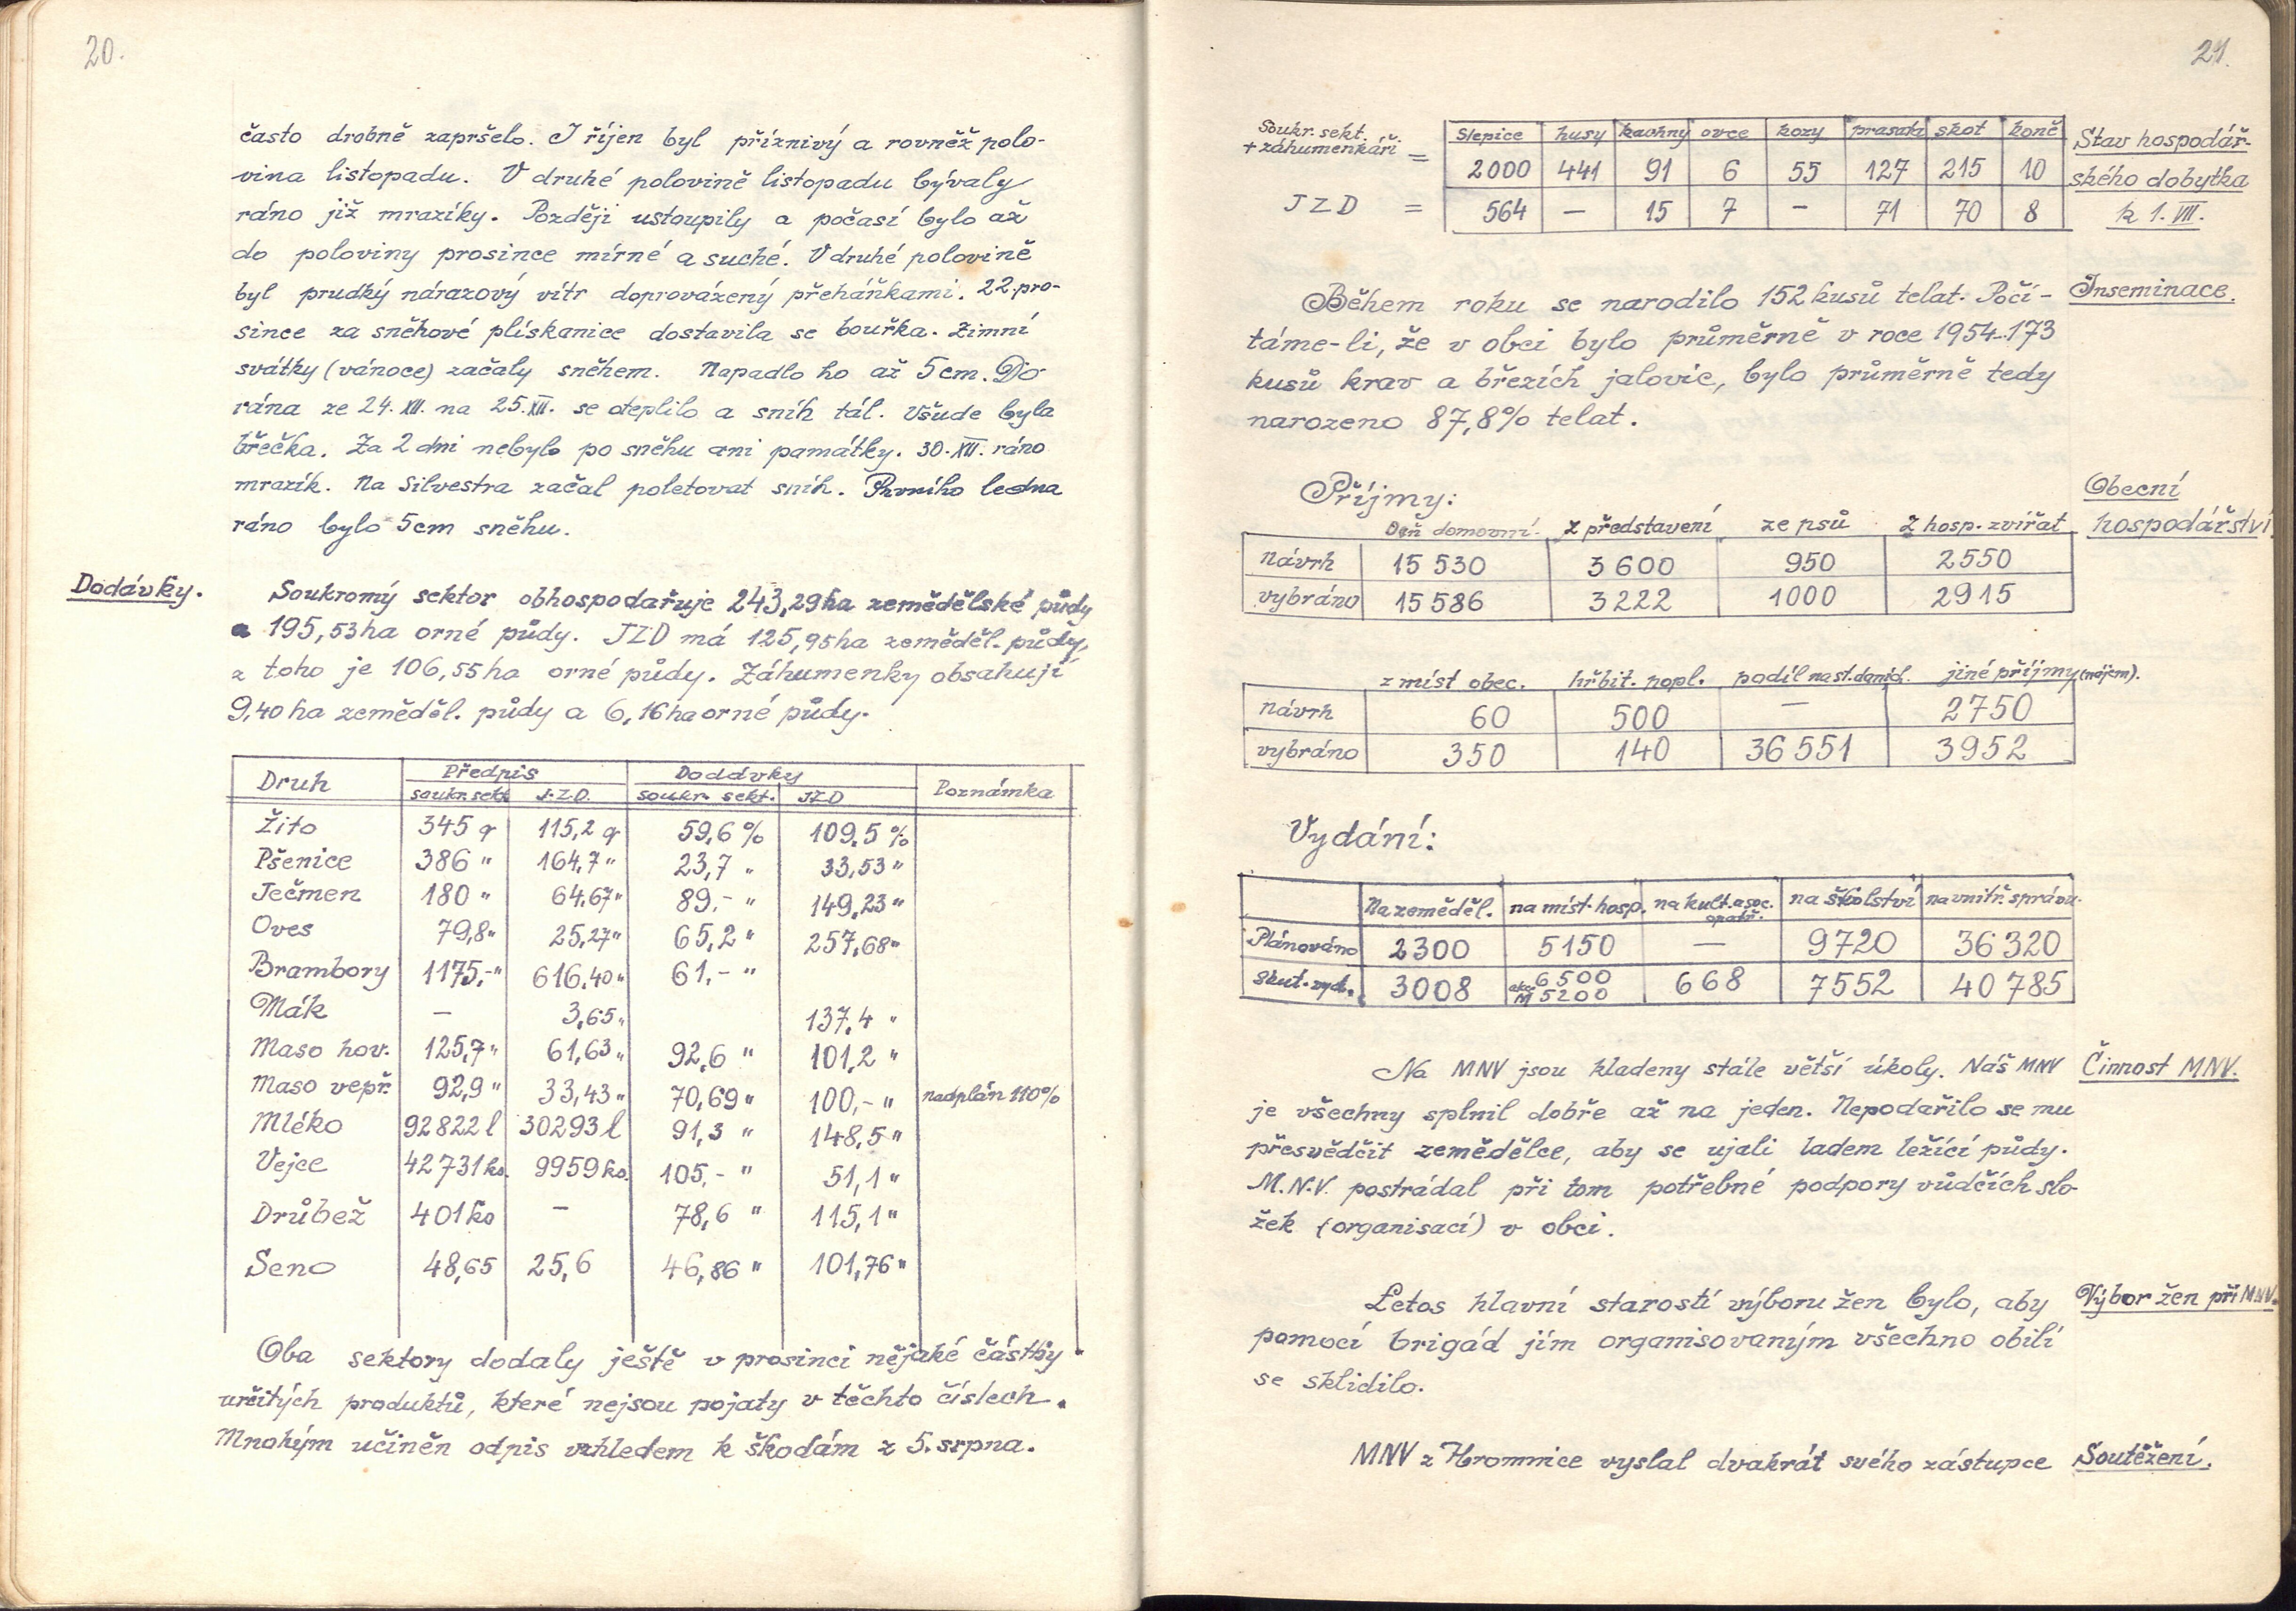 20.
často drobně zapršelo. I říjen byl příznivý a rovněž polo-
vina listopadu. V druhé polovině listopadu bývaly
ráno již mrazíky. Později ustoupily a počasí bylo až
do poloviny prosince mírné a suché. V druhé polovině
byl prudký nárazový vítr doprovázený přeháňkami. 22. pro-
since za sněhové plískanice dostavila se bouřka. Zimní
svátky (vánoce) začaly sněhem. Napadlo ho až 5 cm. Do
rána ze 24. XII. na 25. XII. se oteplilo a sníh tál. Všude byla
břečka. Za 2 dni nebylo po sněhu ani památky. 30. XII. ráno
mrazík. Na Silvestra začal poletovat sníh. Prvního ledna
ráno bylo 5 cm sněhu.
Dodávky.
Soukromý sektor obhospodařuje 243,29 ha zemědělské půdy
a 195,53 ha orné půdy. JZD má 125,95 ha zeměděl. půdy,
z toho je 106,55 ha orné půdy. Záhumenky obsahují
9,40 ha zeměděl. půdy a 6,16 ha orné půdy.
Druh Předpis Dodávky Poznámka
soukr. sekt. J.Z.D. soukr. sekt. JZD
Žito 345 q 115,2 q 59,6 % 109,5 %
Pšenice 386 " 164,7 " 23,7 " 33,53 "
Ječmen 180 " 64,67 " 89,- " 149,23 "
Oves 79,8 " 25,27 " 65,2 " 257,68 "
Brambory 1175,- " 616,40 " 61,- "
Mák — 3,65 " 137,4 "
Maso hov. 125,7 " 61,63 " 92,6 " 101,2 "
Maso vepř. 92,9 " 33,43 " 70,69 " 100,- " nadplán 110%
Mléko 92822 l 30293 l 91,3 " 148,5 "
Vejce 42731 ks. 9959 ks. 105,- " 51,1 "
Drůbež 401 ks — 78,6 " 115,1 "
Seno 48,65 25,6 46,86 " 101,76 "
Oba sektory dodaly ještě v prosinci nějaké částky
určitých produktů, které nejsou pojaty v těchto číslech.
Mnohým učiněn odpis vzhledem k škodám z 5. srpna.
21.
Slepice husy kachny ovce kozy prasata skot koně
Soukr. sekt.
+ záhumenkáři = 2000 441 91 6 55 127 215 10
JZD = 564 — 15 7 — 71 70 8
Stav hospodář-
ského dobytka
k 1. VII.
Během roku se narodilo 152 kusů telat. Počí-
Inseminace.
táme-li, že v obci bylo průměrně v roce 1954 173
kusů krav a březích jalovic, bylo průměrně tedy
narozeno 87,8% telat.
Příjmy:
Obecní
hospodářství.
Daň domovní. z představení ze psů z hosp. zvířat
Návrh 15 530 3 600 950 2550
vybráno 15 586 3222 1000 2915
z míst obec. hřbit. popl. podíl na st. daních. jiné příjmy (nájem).
Návrh 60 500 — 2750
vybráno 350 140 36 551 3952
Vydání:
Na zeměděl. na míst. hosp. na kult. a soc. opatř. na školství na vnitř. správu.
Plánováno 2300 5150 — 9720 36 320
Skut. vyd. 3008 akce 6500 668 7552 40 785
M 5200
Na MNV jsou kladeny stále větší úkoly. Náš MNV
Činnost MNV.
je všechny splnil dobře až na jeden. Nepodařilo se mu
přesvědčit zemědělce, aby se ujali ladem ležící půdy.
M.N.V. postrádal při tom potřebné podpory vůdčích slo-
žek (organisací) v obci.
Letos hlavní starostí výboru žen bylo, aby
Výbor žen při MNV.
pomocí brigád jím organisovaným všechno obilí
se sklidilo.
MNV z Hromnice vyslal dvakrát svého zástupce
Soutěžení.